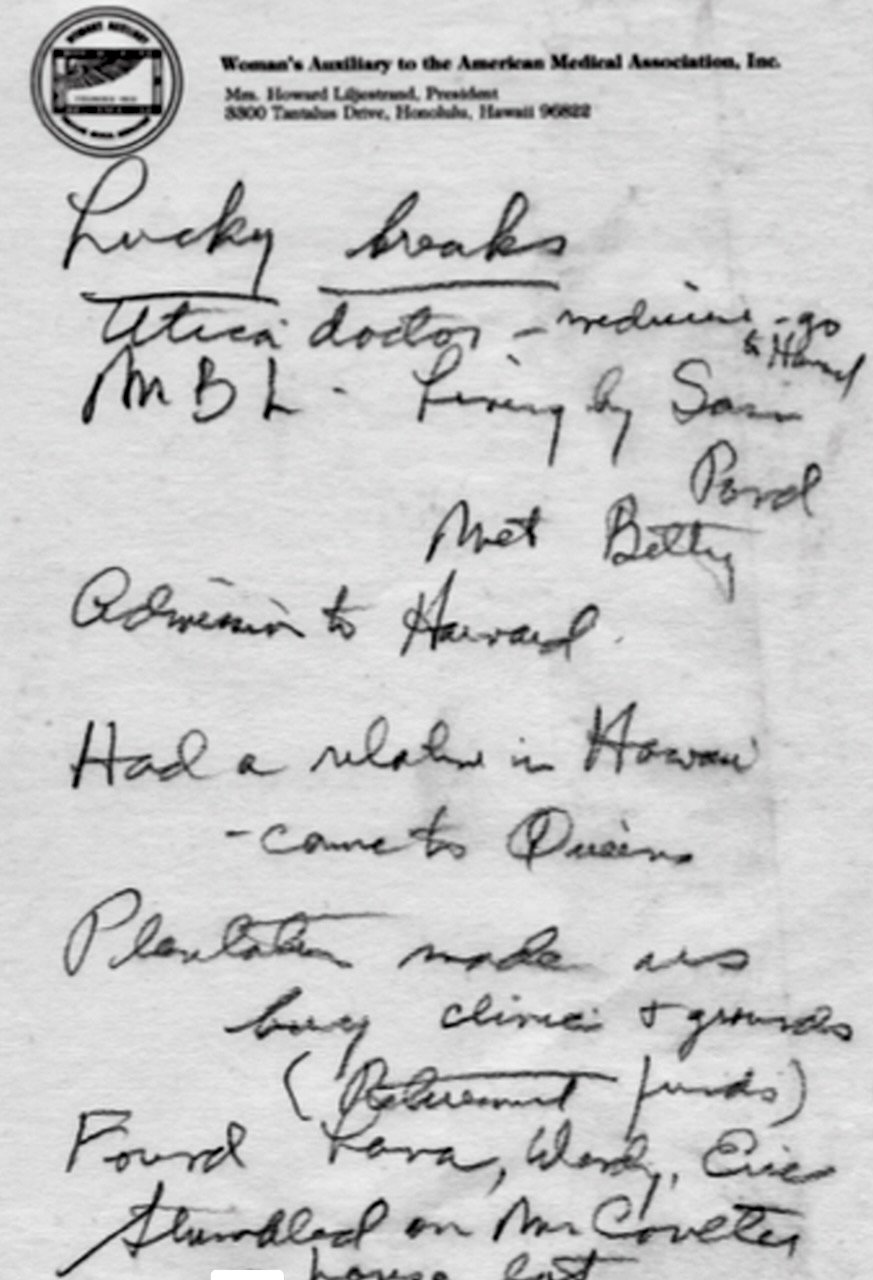 Woman's Auxiliary to the American Medical Association, Inc.
Mrs. Howard Liljestrand, President
3300 Tantalus Drive, Honolulu, Hawaii 96822
Lucky breaks
Utica doctor - medicine - go
to Harvard
MBL - Living by Sam
Pond
Met Betty
Admission to Harvard.
Had a relative in Hawaii
- came to Queens
Plantation made us
buy clinic + grounds
(Retirement funds)
Found Lana, Wendy, Eric
Stumbled on Mrs
house lot